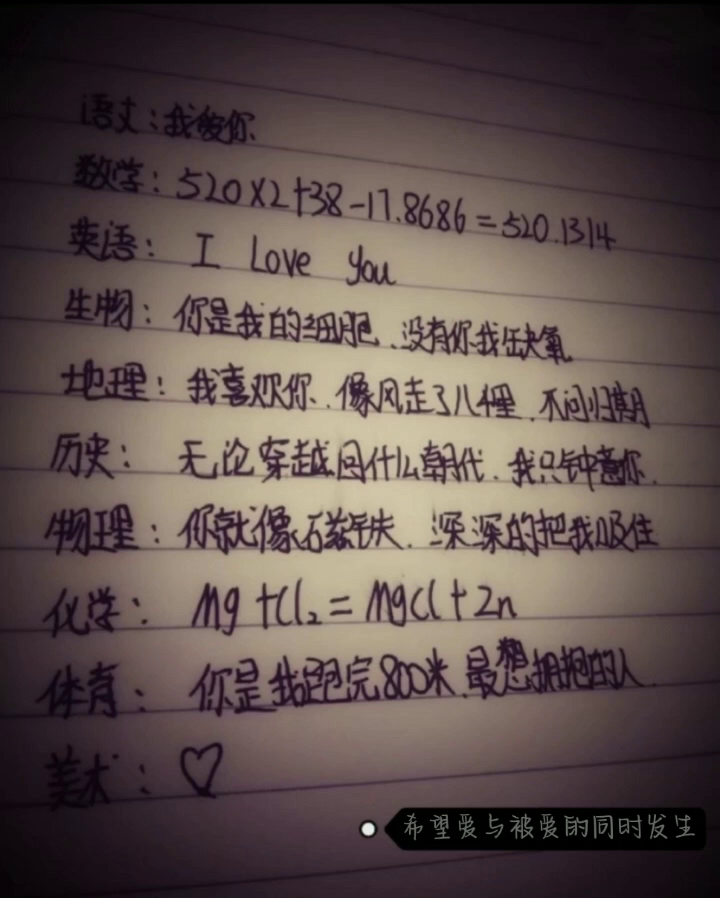 语文：我爱你
数学：520×2+38-17.8686=520.1314
英语： I Love you
生物：你是我的细胞、没有你我缺氧
地理：我喜欢你、像风走了八千里、不问归期
历史： 无论穿越回什么朝代、我只钟意你.
物理：你就像磁铁、深深的把我吸住
化学： Mg+Cl₂=MgCl+Zn
体育： 你是我跑完800米、最想拥抱的人
美术：♡
希望爱与被爱的同时发生